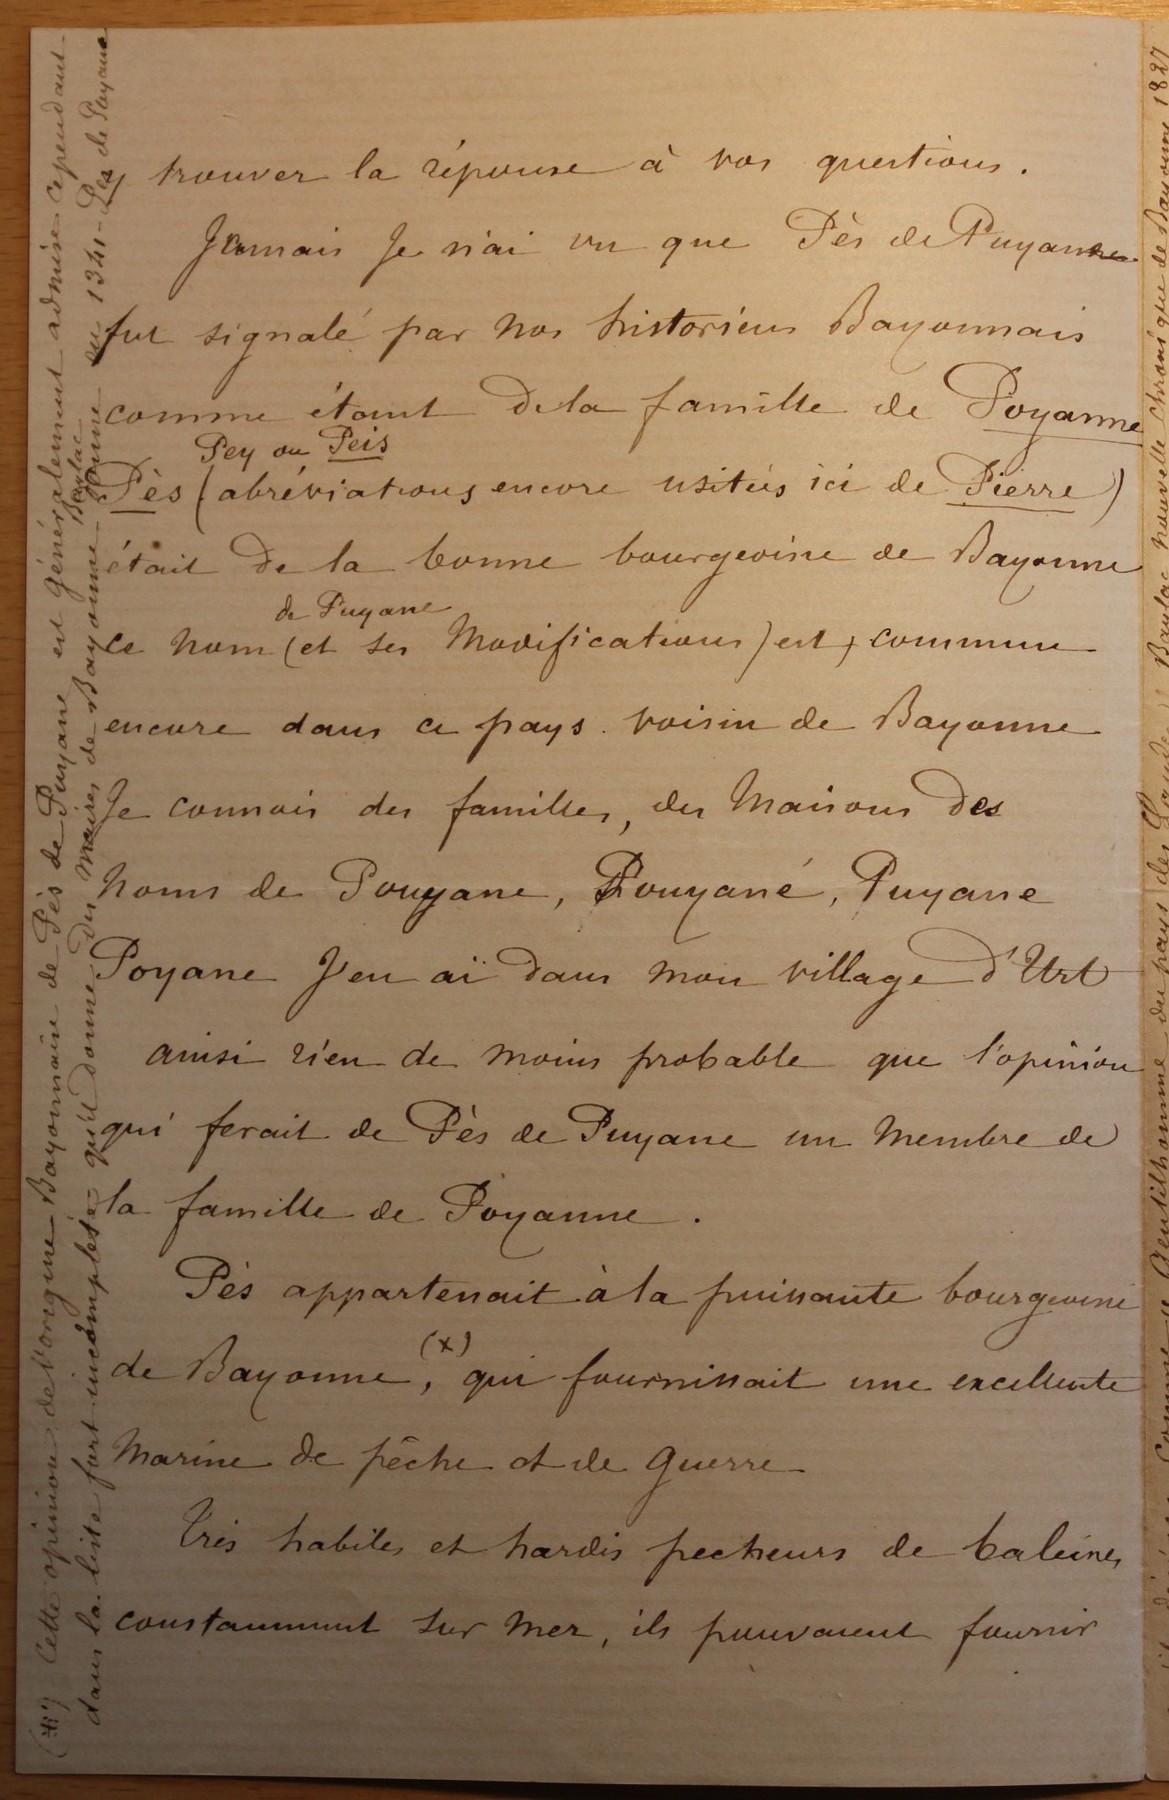 trouver la réponse à vos questions.
Jamais je n'ai vu que Pès de Puyanne
fut signalé par nos historiens Bayonnais
comme étant de la famille de Poyanne
Pey ou Peis
Pès (abréviations encore usitées ici de Pierre)
était de la bonne bourgeoisie de Bayonne
de Puyane
ce nom (et ses modifications) est commun
encore dans ce pays voisin de Bayonne
Je connais des familles, des maisons des
noms de Pouyane, Pouyané, Puyane
Poyane J'en ai dans mon village d'Urt
ainsi rien de moins probable que l'opinion
qui ferait de Pès de Puyane un membre de
la famille de Poyanne.
Pès appartenait à la puissante bourgeoisie
de Bayonne, (x) qui fournissait une excellente
marine de pêche et de guerre
Très habiles et hardis pecheurs de baleines
constamment sur mer, ils pouvaient fournir
Cette opinion de l'origine Bayonnaise de Pès de Puyane est généralement admise cependant
Baylac
dans la liste fort incomplète qu'il donne des maires de Bayonne donne en 1341 - Pès de Poyane
du pays des Landes Baylac nouvelle chronique de Bayonne 1827
comme un Gentilhomme